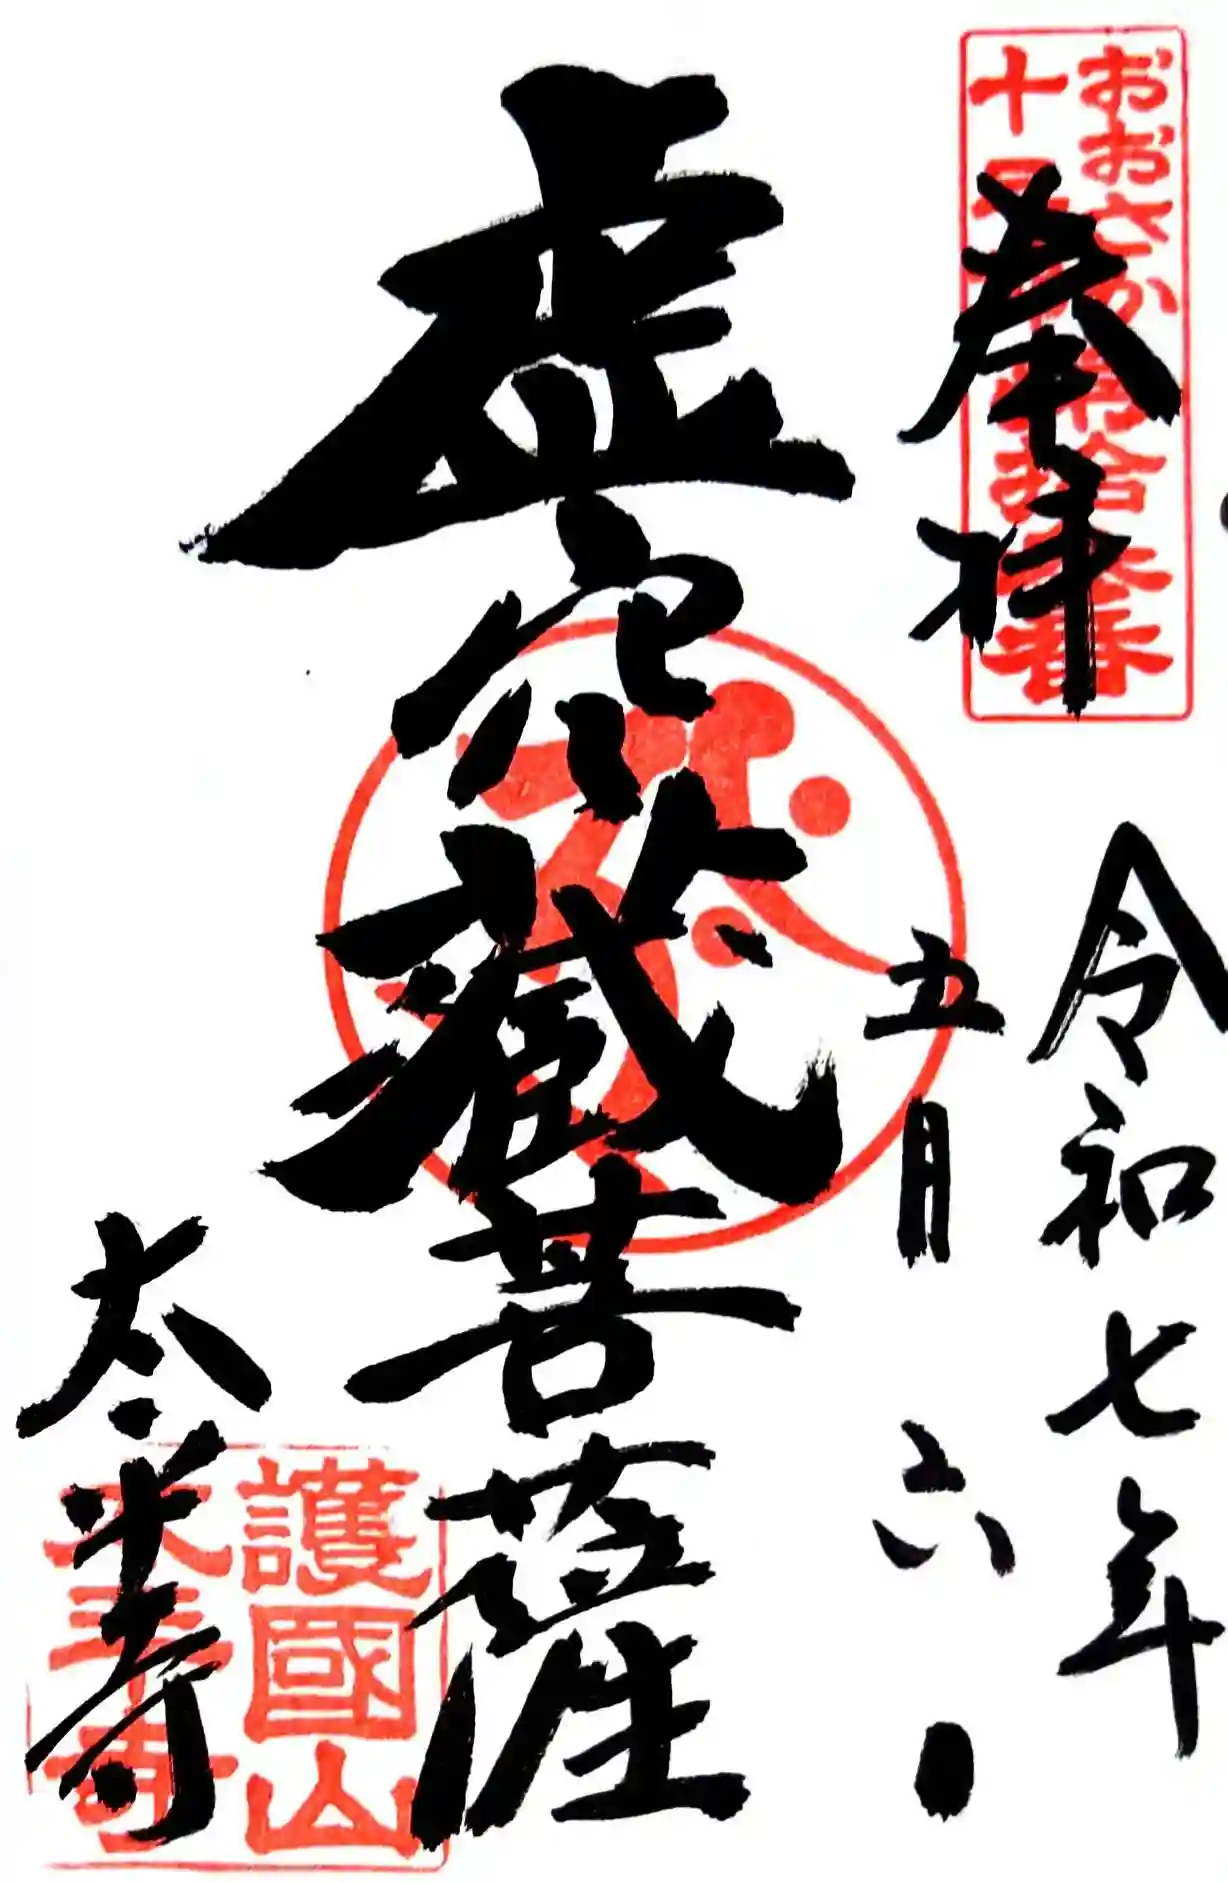 おおさか第拾六番
十三
奉拝
令和七年
五月六日
虚空蔵菩薩
護國山
太平寺
太平寺